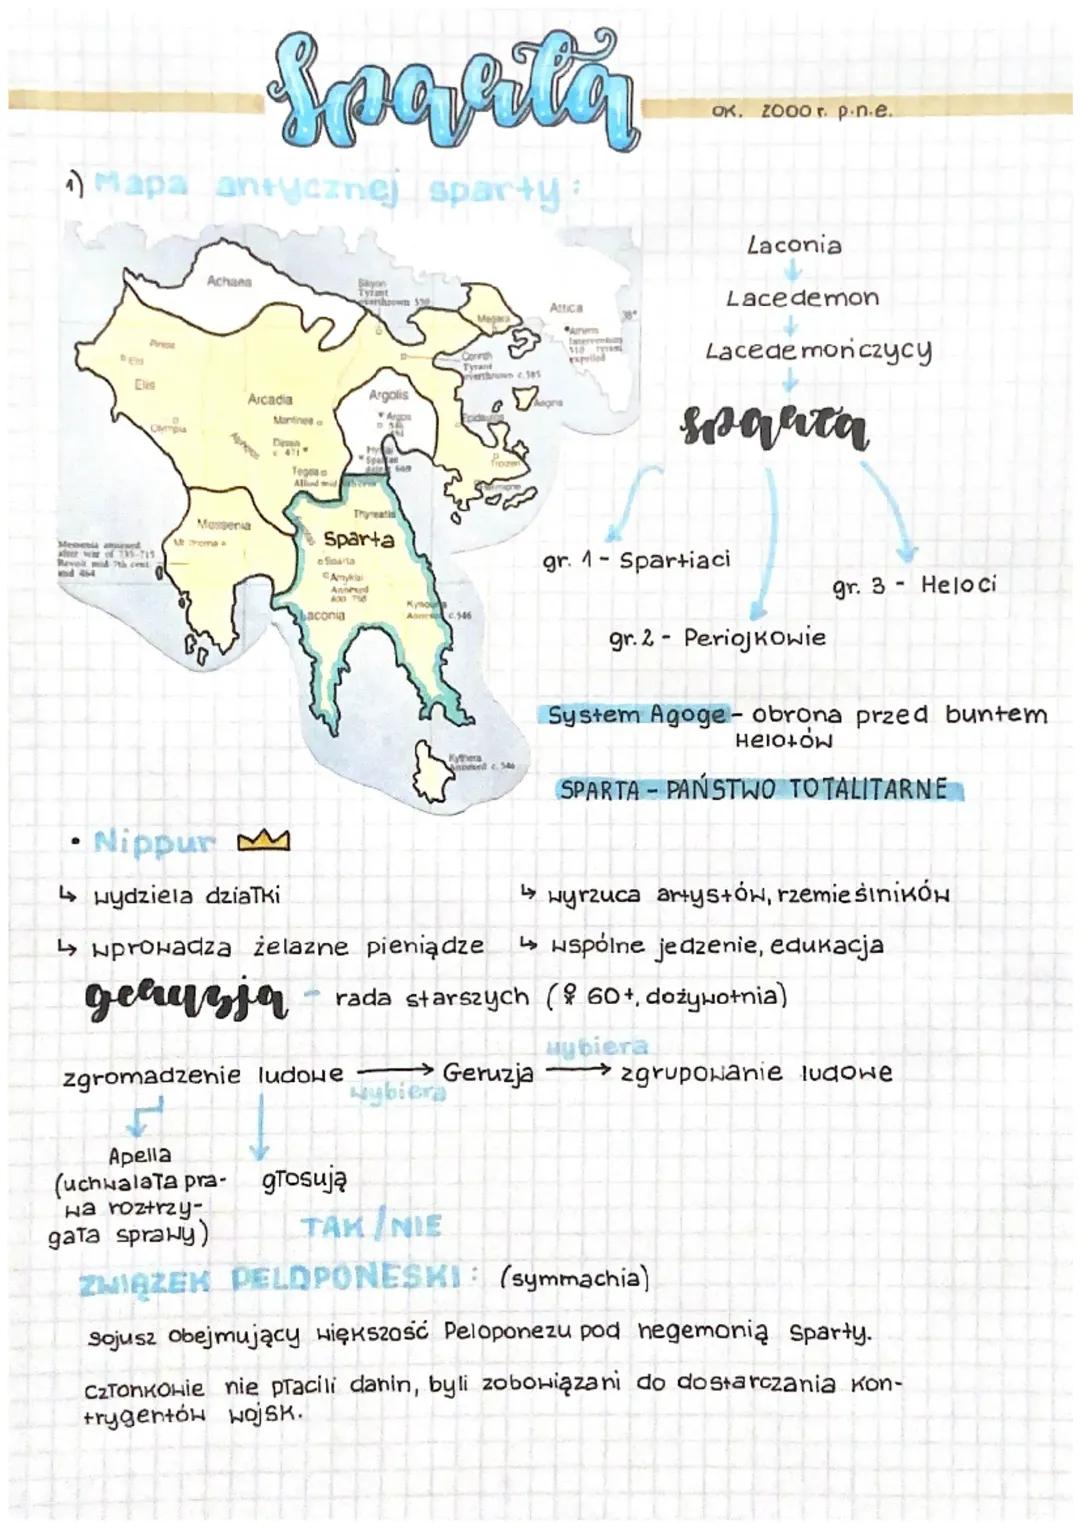 Sparta
ok. 2000 r. p.n.e.
1) Mapa antycznej sparty:
Achaea
Sikyon
Tyrant
overthrown
Megara
Attica
38°
Athens
expelled
Corinth
Tyrant
overthrown c.585
Aegina
Elis
Elis
Olympia
Arcadia
Mantinea
Argolis
Argos
Epidauros
Troizen
Tegea
Thyreatis
Messenia
Mt Ithome
Messenia annexed
after war of 735-715
Revolt mid 7th cent.
and 464
Sparta
Sparta
Amyklai
Annexed
Laconia
c.546
Kythera
Annexed c. 546
Laconia
Lacedemon
Lacedemończycy
sparta
gr. 1 - Spartiaci
gr. 3 - Heloci
gr. 2 - Periojkowie
System Agoge - obrona przed buntem
Helotów
SPARTA - PAŃSTWO TOTALITARNE
• Nippur
↳ wydziela działki
↳ wyrzuca artystów, rzemieślników
↳ wprowadza żelazne pieniądze
↳ wspólne jedzenie, edukacja
geruzja - rada starszych (♀ 60+, dożywotnia)
zgromadzenie ludowe → wybiera Geruzja → wybiera zgrupowanie ludowe
Apella
(uchwalała pra-
wa roztrzy-
gała sprawy)
głosują
TAK/NIE
ZWIĄZEK PELOPONESKI: (symmachia)
sojusz obejmujący większość Peloponezu pod hegemonią sparty.
członkowie nie płacili danin, byli zobowiązani do dostarczania kon-
trygentów wojsk.